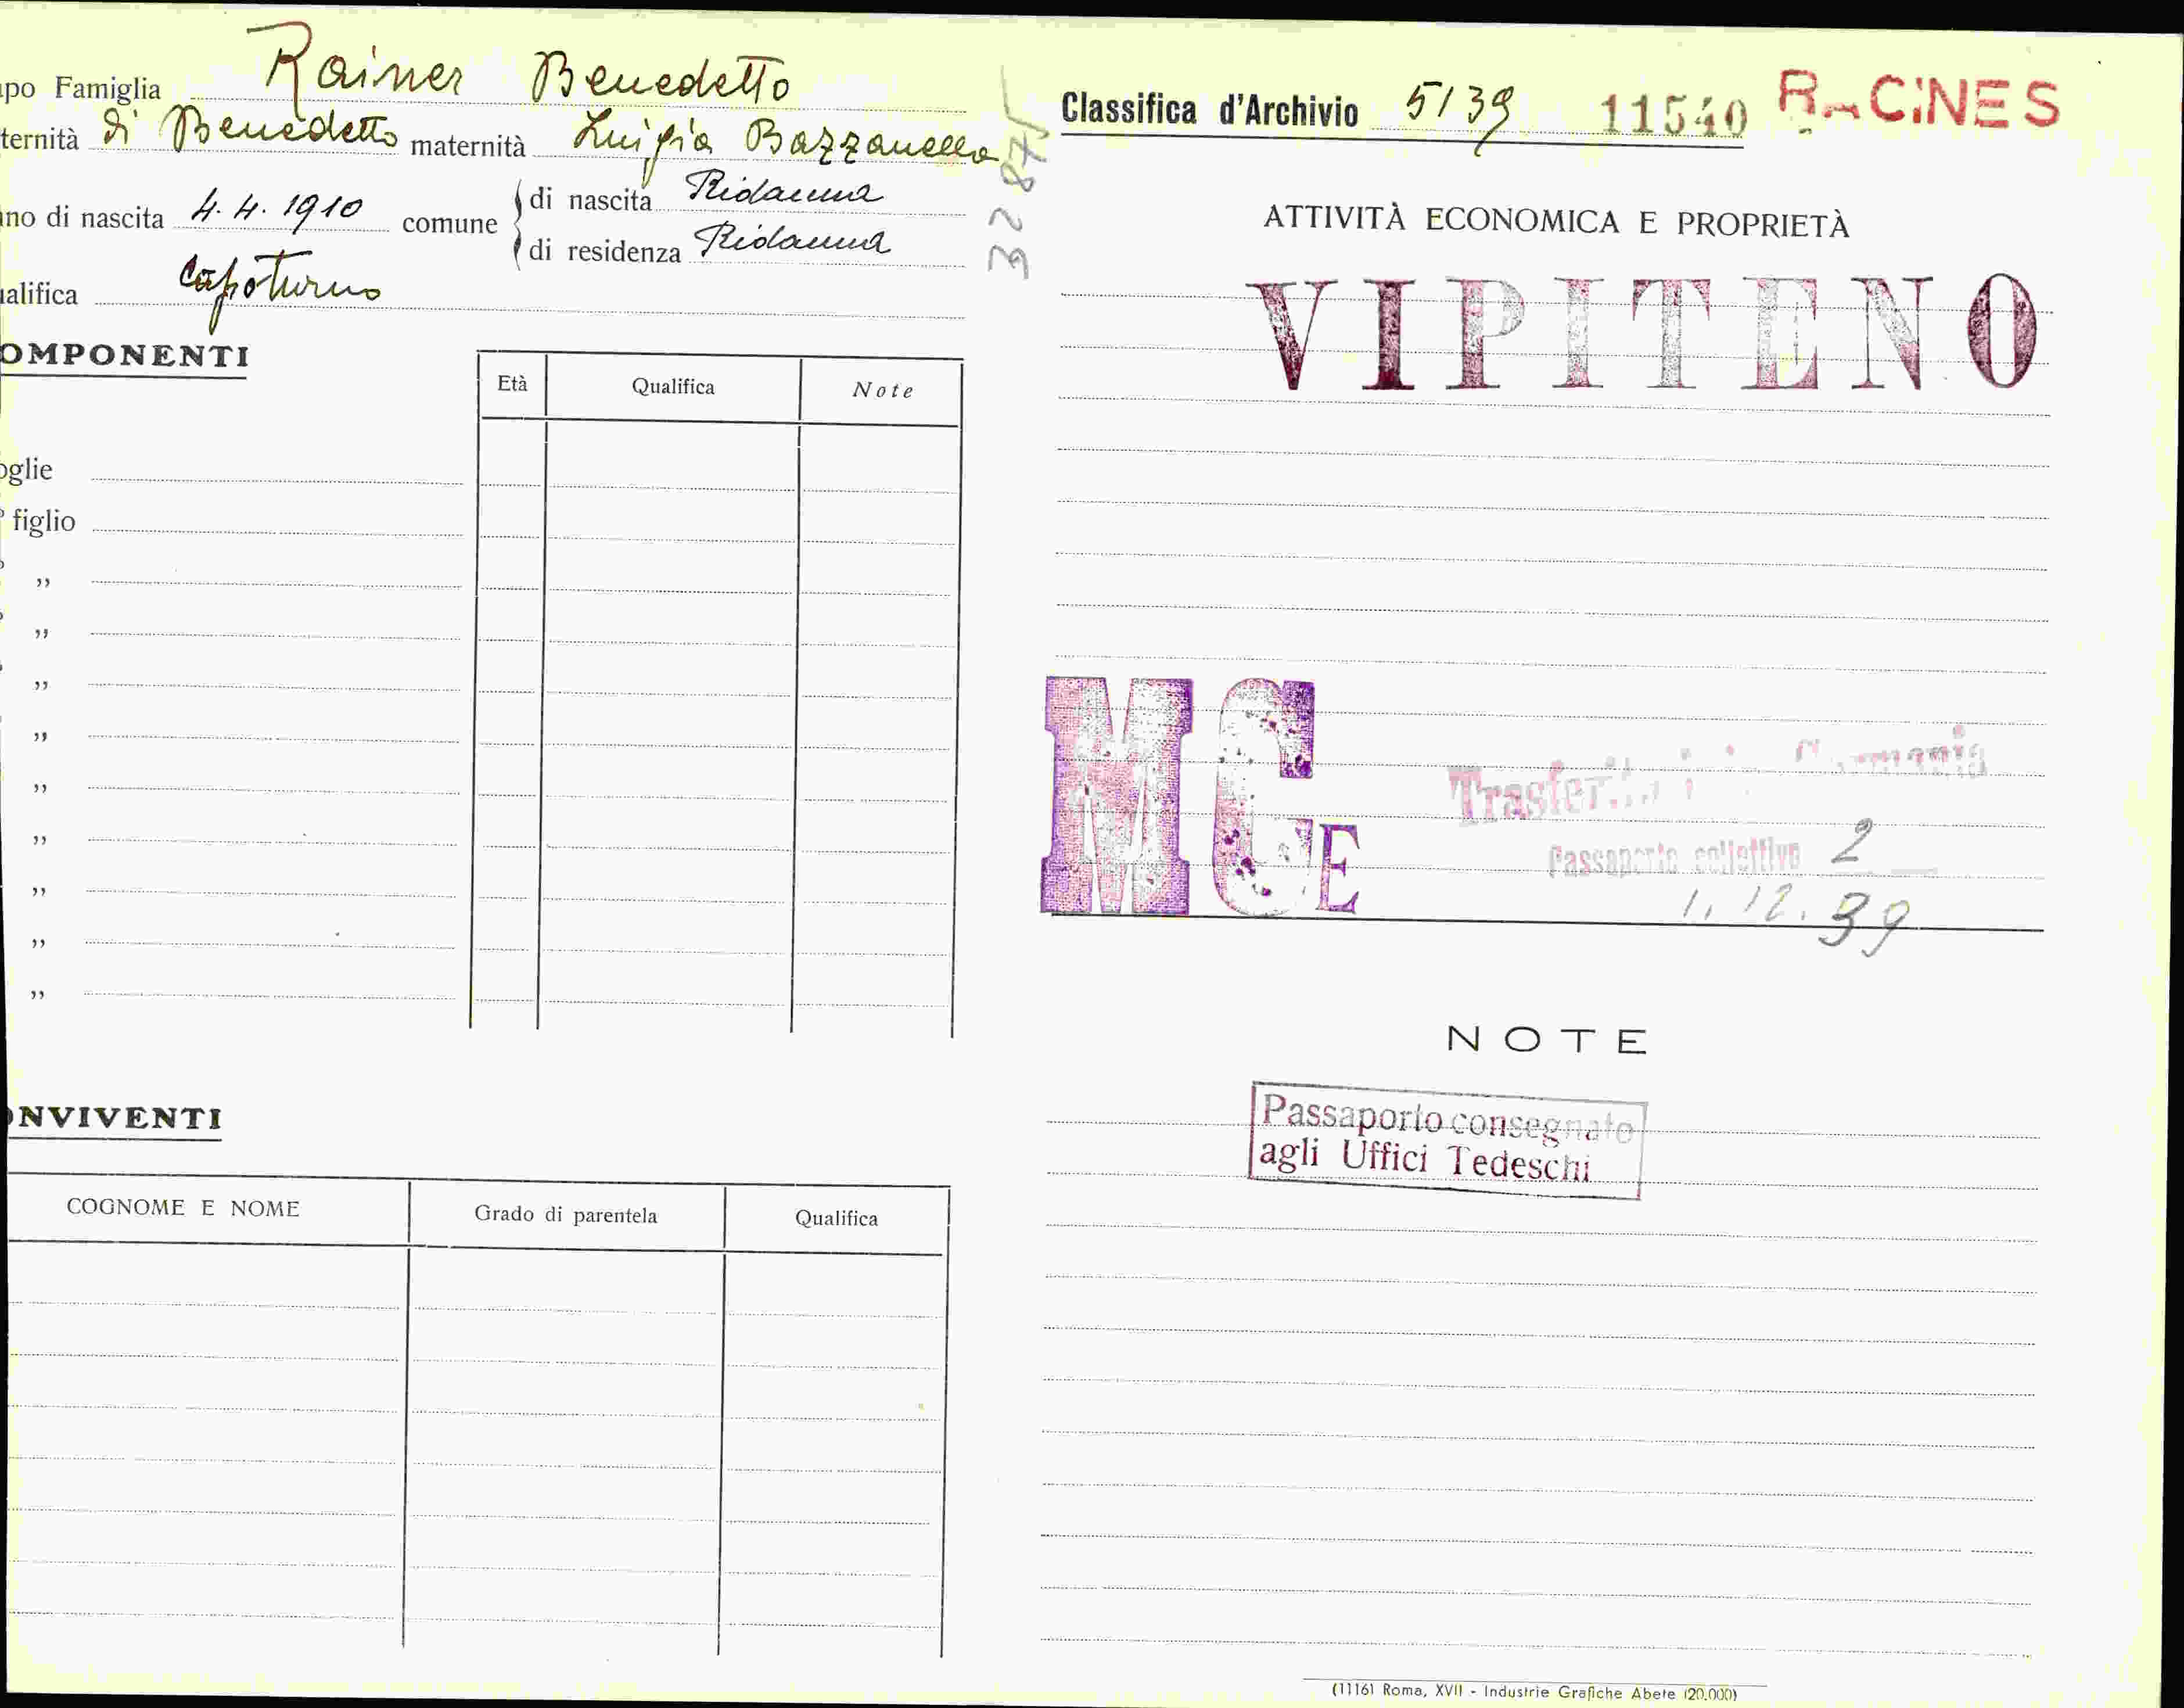 po Famiglia Rainer Benedetto
ternità di Benedetto maternità Luigia Bazzanella
no di nascita 4. 4. 1910 comune
di nascita Ridanna
di residenza Ridanna
alifica Capoturno
32875
OMPONENTI
Età Qualifica Note
oglie
° figlio
”
”
”
”
”
”
”
”
”
ONVIVENTI
COGNOME E NOME Grado di parentela Qualifica
Classifica d'Archivio 5/39 11540 RACINES
ATTIVITÀ ECONOMICA E PROPRIETÀ
VIPITENO
MCE
Trasferito in Germania
Passaporto collettivo 2
1. 12. 39
NOTE
Passaporto consegnato
agli Uffici Tedeschi
(11161 Roma, XVII - Industrie Grafiche Abete (20.000)